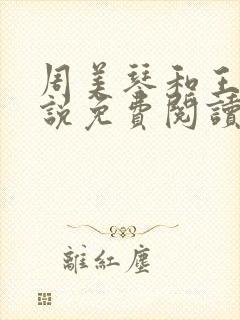 周美琴和王
說免費閱讀
離紅塵